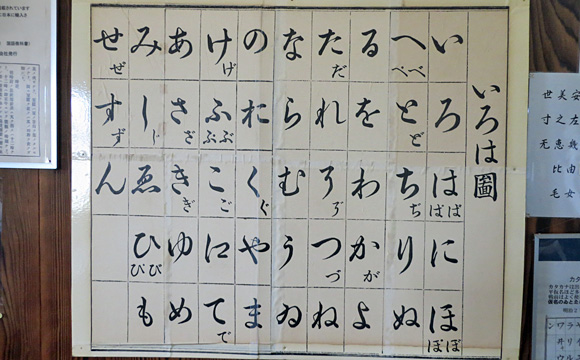 いろは圖
い ろ は ばぱ に ほ ぼぽ
へ べぺ と ど ち ぢ り ぬ
る を わ か が よ
た だ れ そ ぞ つ づ ね
な ら む う ゐ
の お く ぐ や ま
け げ ふ ぶぷ こ ご 江 て で
あ さ ざ き ぎ ゆ め
み し じ ゑ ひ びぴ も
せ ぜ す ず ん
安左幾由女
美之恵比毛
世寸无